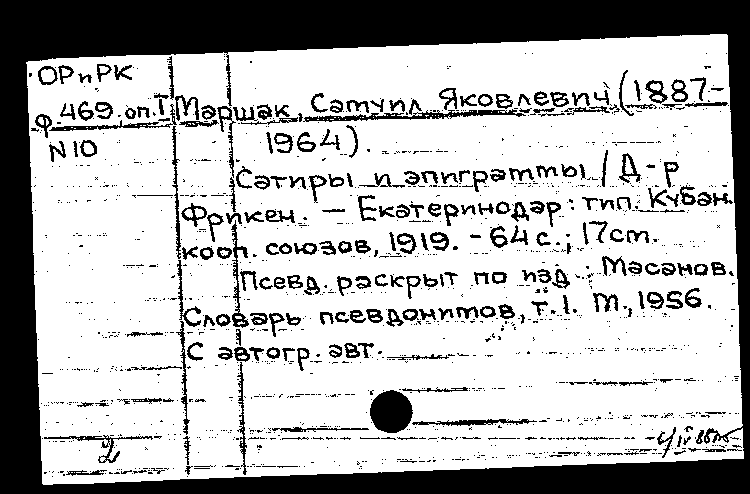 ОРиРК
ф.469, оп.I Маршак, Самуил Яковлевич (1887-
N 10 1964).
Сатиры и эпиграммы / Д-р
Фрикен. — Екатеринодар: тип. Кубан.
кооп. союзов, 1919. - 64 с.; 17см.
Псевд. раскрыт по изд.: Масанов.
Словарь псевдонимов, т. 1. М., 1956.
С автогр. авт.
2